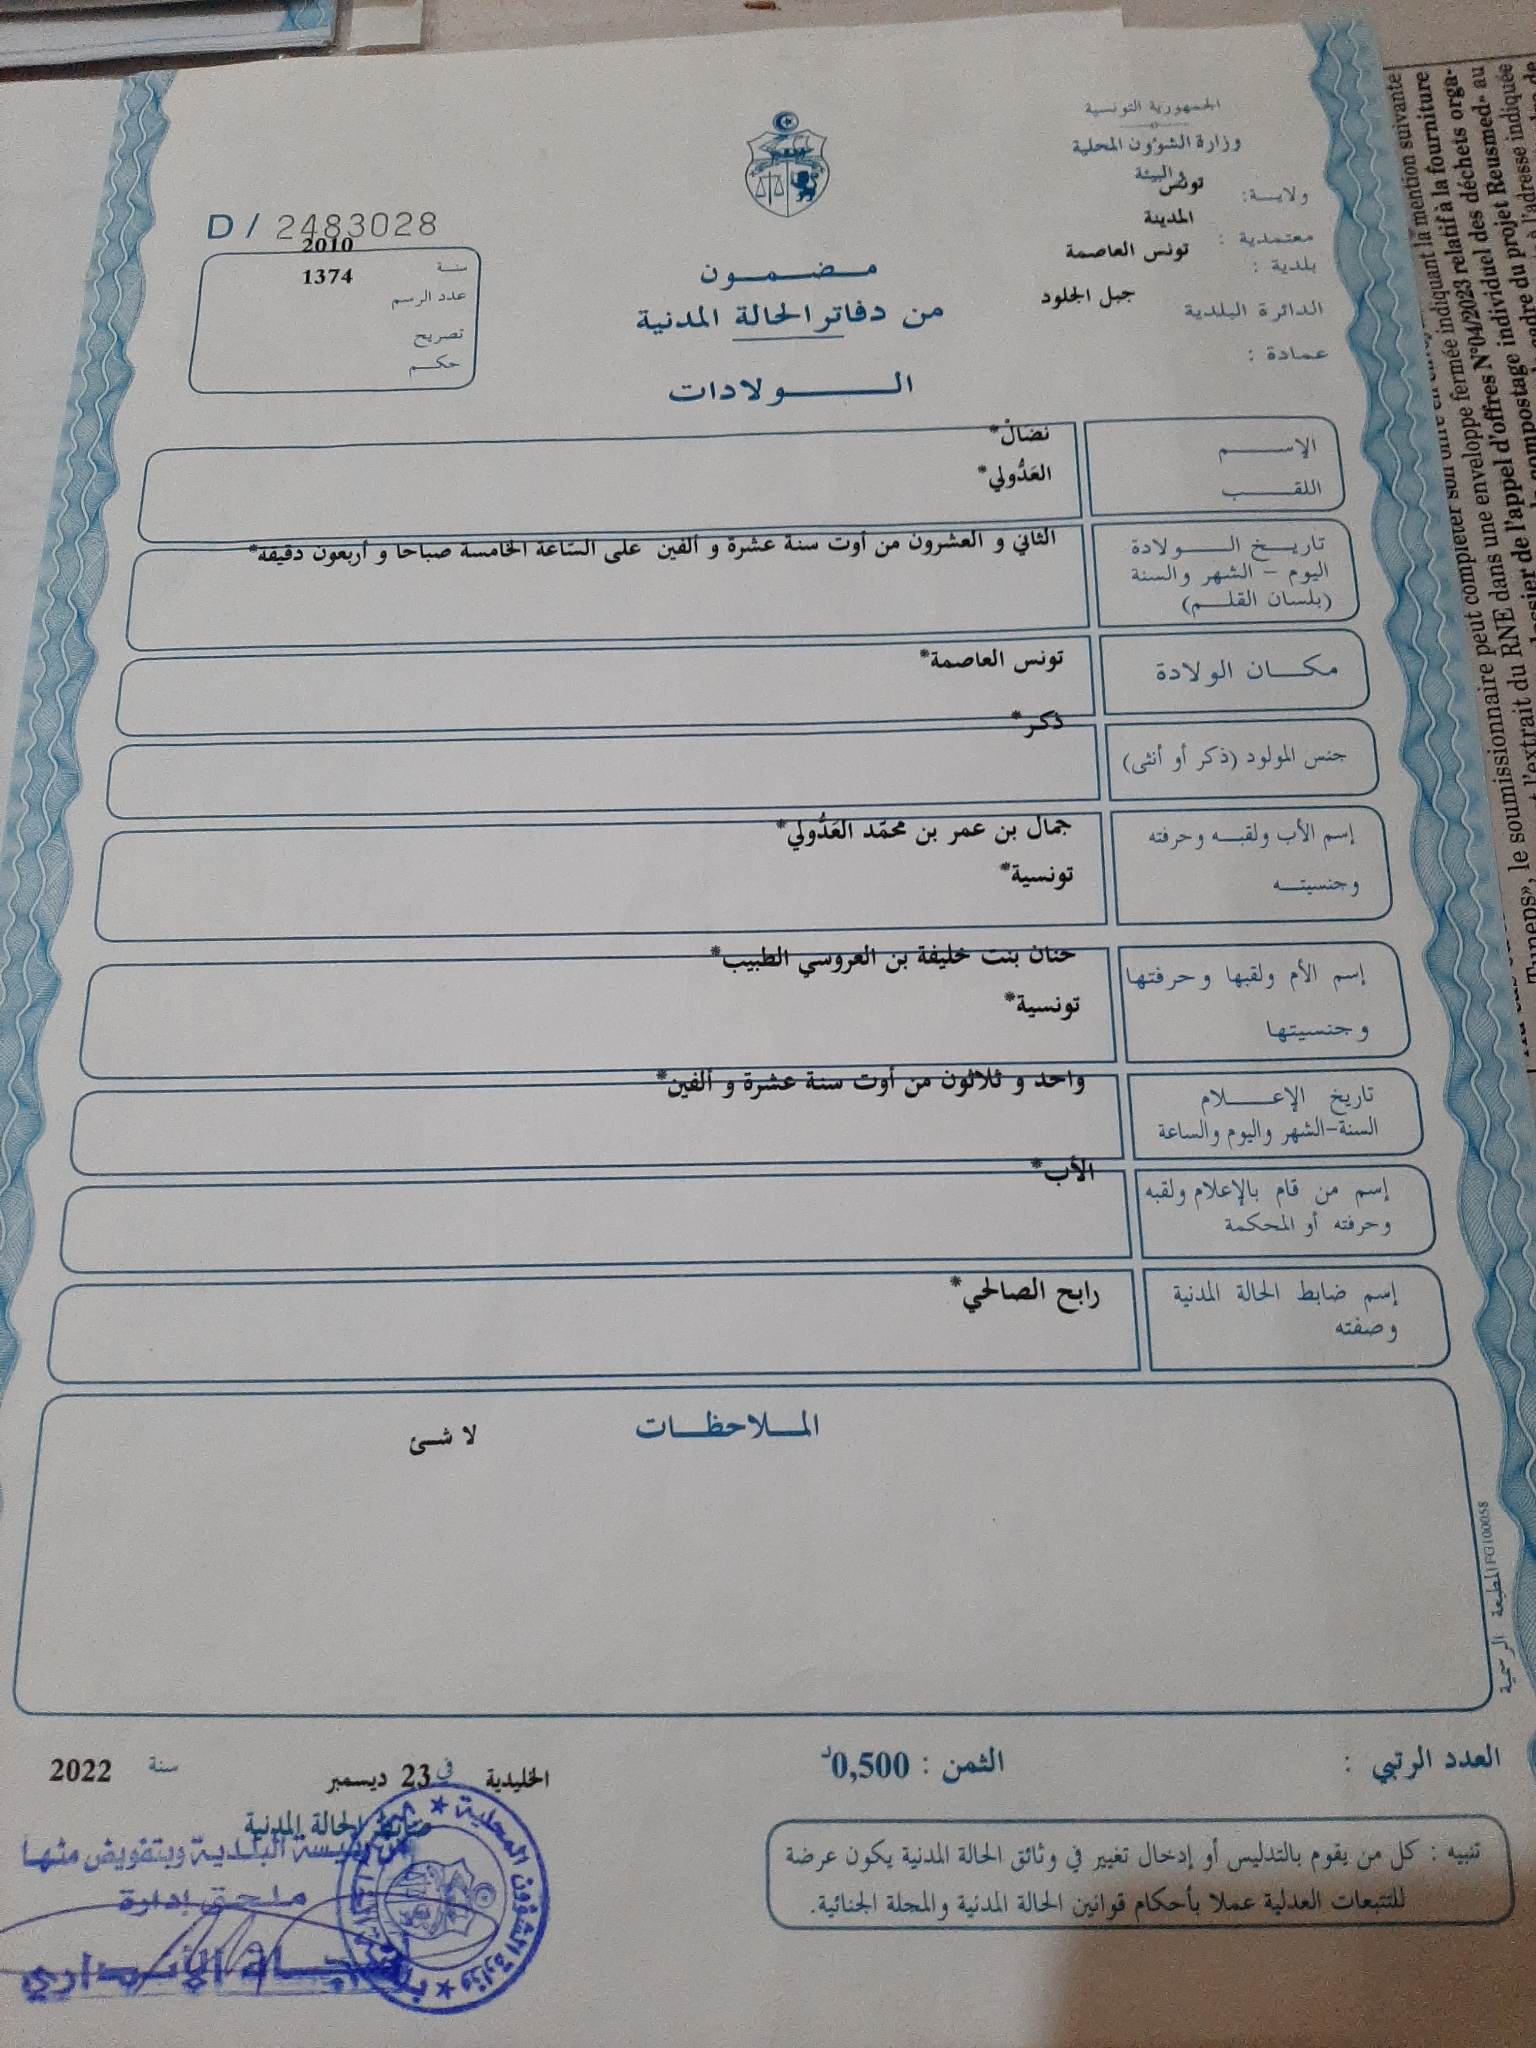 الجمهورية التونسية
وزارة الشؤون المحلية
والبيئة
ولايـــة: تونس
معتمدية : المدينة
بلدية : تونس العاصمة
الدائرة البلدية جبل الجلود
عمادة :
D / 2483028
سنة 2010
عدد الرسم 1374
تصريح
حكــم
مــضــمــون
من دفاتر الحالة المدنية
الــــولادات
الإســـــم نضالْ*
اللقـــــب العَدُّولي*
تاريــخ الـــولادة الثاني و العشرون من أوت سنة عشرة و ألفين على السّاعة الخامسة صباحا و أربعون دقيقة*
اليوم – الشهر والسنة
(بلسان القلــم)
مكـــان الولادة تونس العاصمة*
جنس المولود (ذكر أو أنثى) ذكر*
إسم الأب ولقبــه وحرفته جمال بن عمر بن محمّد العَدُّولي*
وجنسيتــه تونسية*
إسم الأم ولقبها وحرفتها حنان بنت خليفة بن العروسي الطبيب*
وجنسيتها تونسية*
تاريخ الإعــــلام واحد و ثلاثون من أوت سنة عشرة و ألفين*
السنة-الشهر واليوم والساعة
إسم من قام بالإعلام ولقبه الأب*
وحرفته أو المحكمة
إسم ضابط الحالة المدنية رابح الصالحي*
وصفته
الملاحظات
لا شئ
المطبعة الرسمية FG100058
العدد الرتبي :
الثمن : 0,500د
الخليدية في 23 ديسمبر سنة 2022
ضابط الحالة المدنية
عن رئيسة البلدية وبتفويض منها
ملحق إدارة
الأنصاري
وزارة الشؤون المحلية
تنبيه : كل من يقوم بالتدليس أو إدخال تغيير في وثائق الحالة المدنية يكون عرضة
للتتبعات العدلية عملا بأحكام قوانين الحالة المدنية والمجلة الجنائية.
indiquant la mention suivante
fermée indiquant N°04/2023 relatif à la fourniture
le soumissionnaire peut compléter son offre en
l'extrait du RNE dans une enveloppe
dossier de l'appel d'offres
compostage individuel des déchets orga-
du projet Reusmed» au
à l'adresse indiquée